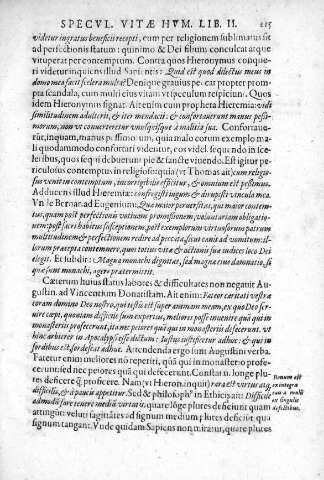 SPECVL. VITÆ HVM. LIB. II. 215
videtur ingratus beneficii recepti, cum per religionem sublimatus sit
ad perfectionis statum: quinimo & Dei filium conculcat atque
vituperat per contemptum. Contra quos Hieronymus conque-
ri videtur inquiens illud Sapientis: Quid est quod dilectus meus in
domo mea facit scelera multa? Denique grauius peccat propter prom-
pta scandala, cum multi eius vitam vt speculum respiciunt. Quos
idem Hieronymus signat. Ait enim cum propheta Hieremia: vidi
similitudinem adulterii, & iter mendacii: & confortauerunt manus pessi-
morum, non vt conuerteretur vnusquisque a malitia sua. Confortaue-
runt, inquam, manus pessimorum, quia malo eorum exemplo ma-
li quodammodo confortati videntur, eos videl. sequendo in sce-
leribus, quos sequi debuerunt pie & sancte viuendo. Est igitur pe-
riculosus contemptus in religioso: quia (vt Thomas ait) cum religio-
sus venit in contemptum, incorrigibilis efficitur, & omnium est pessimus.
Adducens illud Hieremiæ: confregisti iugum & dirupisti vincula mea.
Vn le Bernar. ad Eugenium: Quæ maior peruersitas, quæ maior contem-
tus, quam post perfectionis votiuam promissionem, voluntariam obligatio-
nem: post sacri habitus susceptionem, post exemplorum virtuosorum patrum
multitudinem & perfectionum redire ad peccata, sicut canis ad vomitum: il-
lorum præcepta contemnere, quos totius vitæ & actionis suæ iudices loco Dei
elegit. Et subdit: Magna monachi dignitas, sed magna eius damnatio, si
quæ sunt monachi, agere prætermittit.
Cæterum huius status labores & difficultates non negauit Au-
gustin. ad Vincentium Donatistam. Ait enim: Fateor caritati vestræ
coram domino Deo nostro, qui testis est super animam meam, ex quo Deo ser-
uire cœpi, quoniam difficile sum expertus, meliores posse inuenire quam qui in
monasteriis profecerunt, ita me peiores quam qui in monasteriis defecerunt. vt
hinc arbitrer in Apocalypsi esse dictum: Iustus iustificetur adhuc: & qui in
sordibus est sordescat adhuc. Attendenda ergo sunt Augustini verba.
Fatetur enim meliores non reperiri, quam qui in monasterio profe-
cerunt: sed nec peiores quam qui defecerunt. Constat autem longe plu-
res deficere quam proficere. Nam (vt Hieron. inquit) rara est virtus atque
difficilis, & a paucis appetitur. Sed & philosophus in Ethicis ait: Difficile
admodum fore tenere medium virtutis, quare longe plures deficiunt quam
attingunt: veluti sagittantes ad signum medium, plures deficiunt quam
signum tangant. Vnde quidam Sapiens non miratur, quare plures
Bonum est
ex integra
causa malum
ex singulis
defectibus.